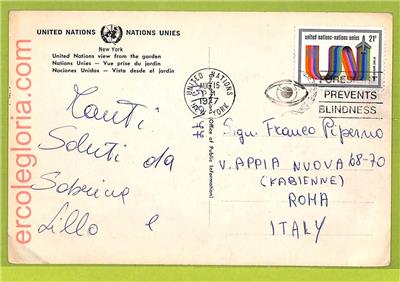 UNITED NATIONS NATIONS UNIES
New York
United Nations view from the garden
Nations Unies - Vue prise du jardin
Naciones Unidas - Vista desde el jardín
united nations-nations unies
21c
UN
UNITED NATIONS
AUG 15
PM
1977
NEW YORK
FORESIGHT
PREVENTS
BLINDNESS
Tanti
Saluti da
Sabrina
Lillo e
Sign. Franco Piperno
V. APPIA NUOVA 68-70
(FABIENNE)
ROMA
ITALY
(Office of Public Information)
ercolegloria.com